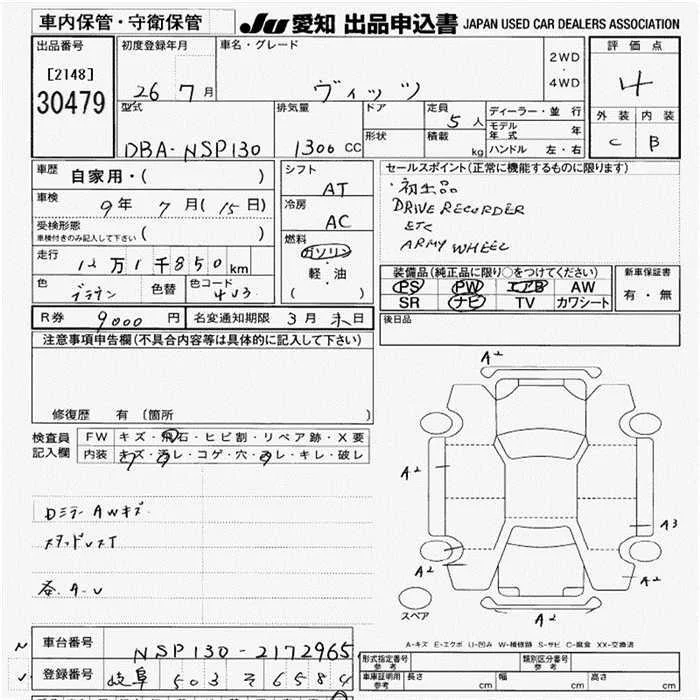 車内保管・守衛保管
JU 愛知 出品申込書 JAPAN USED CAR DEALERS ASSOCIATION
出品番号
[2148]
30479
初度登録年月
26 7月
車名・グレード
ヴィッツ
2WD
・
4WD
評価点
4
外装 内装
C B
型式
DBA-NSP130
排気量
1300 CC
ドア
形状
定員
5人
積載
kg
ディーラー・並行
モデル年式 年
ハンドル 左・右
車歴
自家用・( )
車検
9年 7月(15日)
受検形態
車検付きのみ記入して下さい ( )
走行
12万1千850km
色
ブラウン
色替
色コード
4U3
シフト
AT
冷房
AC
燃料
ガソリン
軽・油
( )
セールスポイント(正常に機能するものに限ります)
・初出品
DRIVE RECORDER
ETC
ARMY WHEEL
装備品(純正品に限り○をつけてください)
PS PW エアB AW
SR ナビ TV カワシート
新車保証書
有・無
R券 9000円
名変通知期限 3月末日
後日品
注意事項申告欄(不具合内容等は具体的に記入して下さい)
修復歴 有 〔箇所 〕
検査員記入欄
FW キズ・飛石・ヒビ割・リペア跡・X要
内装 キズ・汚レ・コゲ・穴・スレ・キレ・破レ
Dミラー AWキズ
スタッドレスT
A2
A2
A3
A2
A2
A2
スペア
A-キズ E-エクボ U-凹み W-補修跡 S-サビ C-腐食 XX-交換済
車台番号
NSP130-2172965
登録番号
岐阜 503 そ 6584
形式指定番号
参考
類別区分番号
参考
車庫証明用
参考
長さ cm
幅 cm
高さ cm